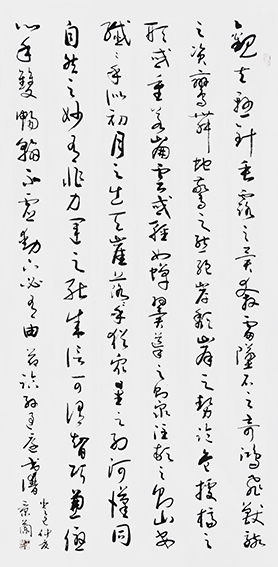 觀夫懸針垂露之異奔雷墜石之奇鴻飛獸駭
之資鸞舞蛇驚之態絕岸頹峰之勢臨危據槁之
形或重若崩雲或輕如蟬翼導之則泉注頓之則山安
纖纖乎似初月之出天崖落落乎猶眾星之列河漢同
自然之妙有非力運之能成信可謂智巧兼優
心手雙暢翰不虛動下必有由節臨孫過庭書譜
癸巳仲夏